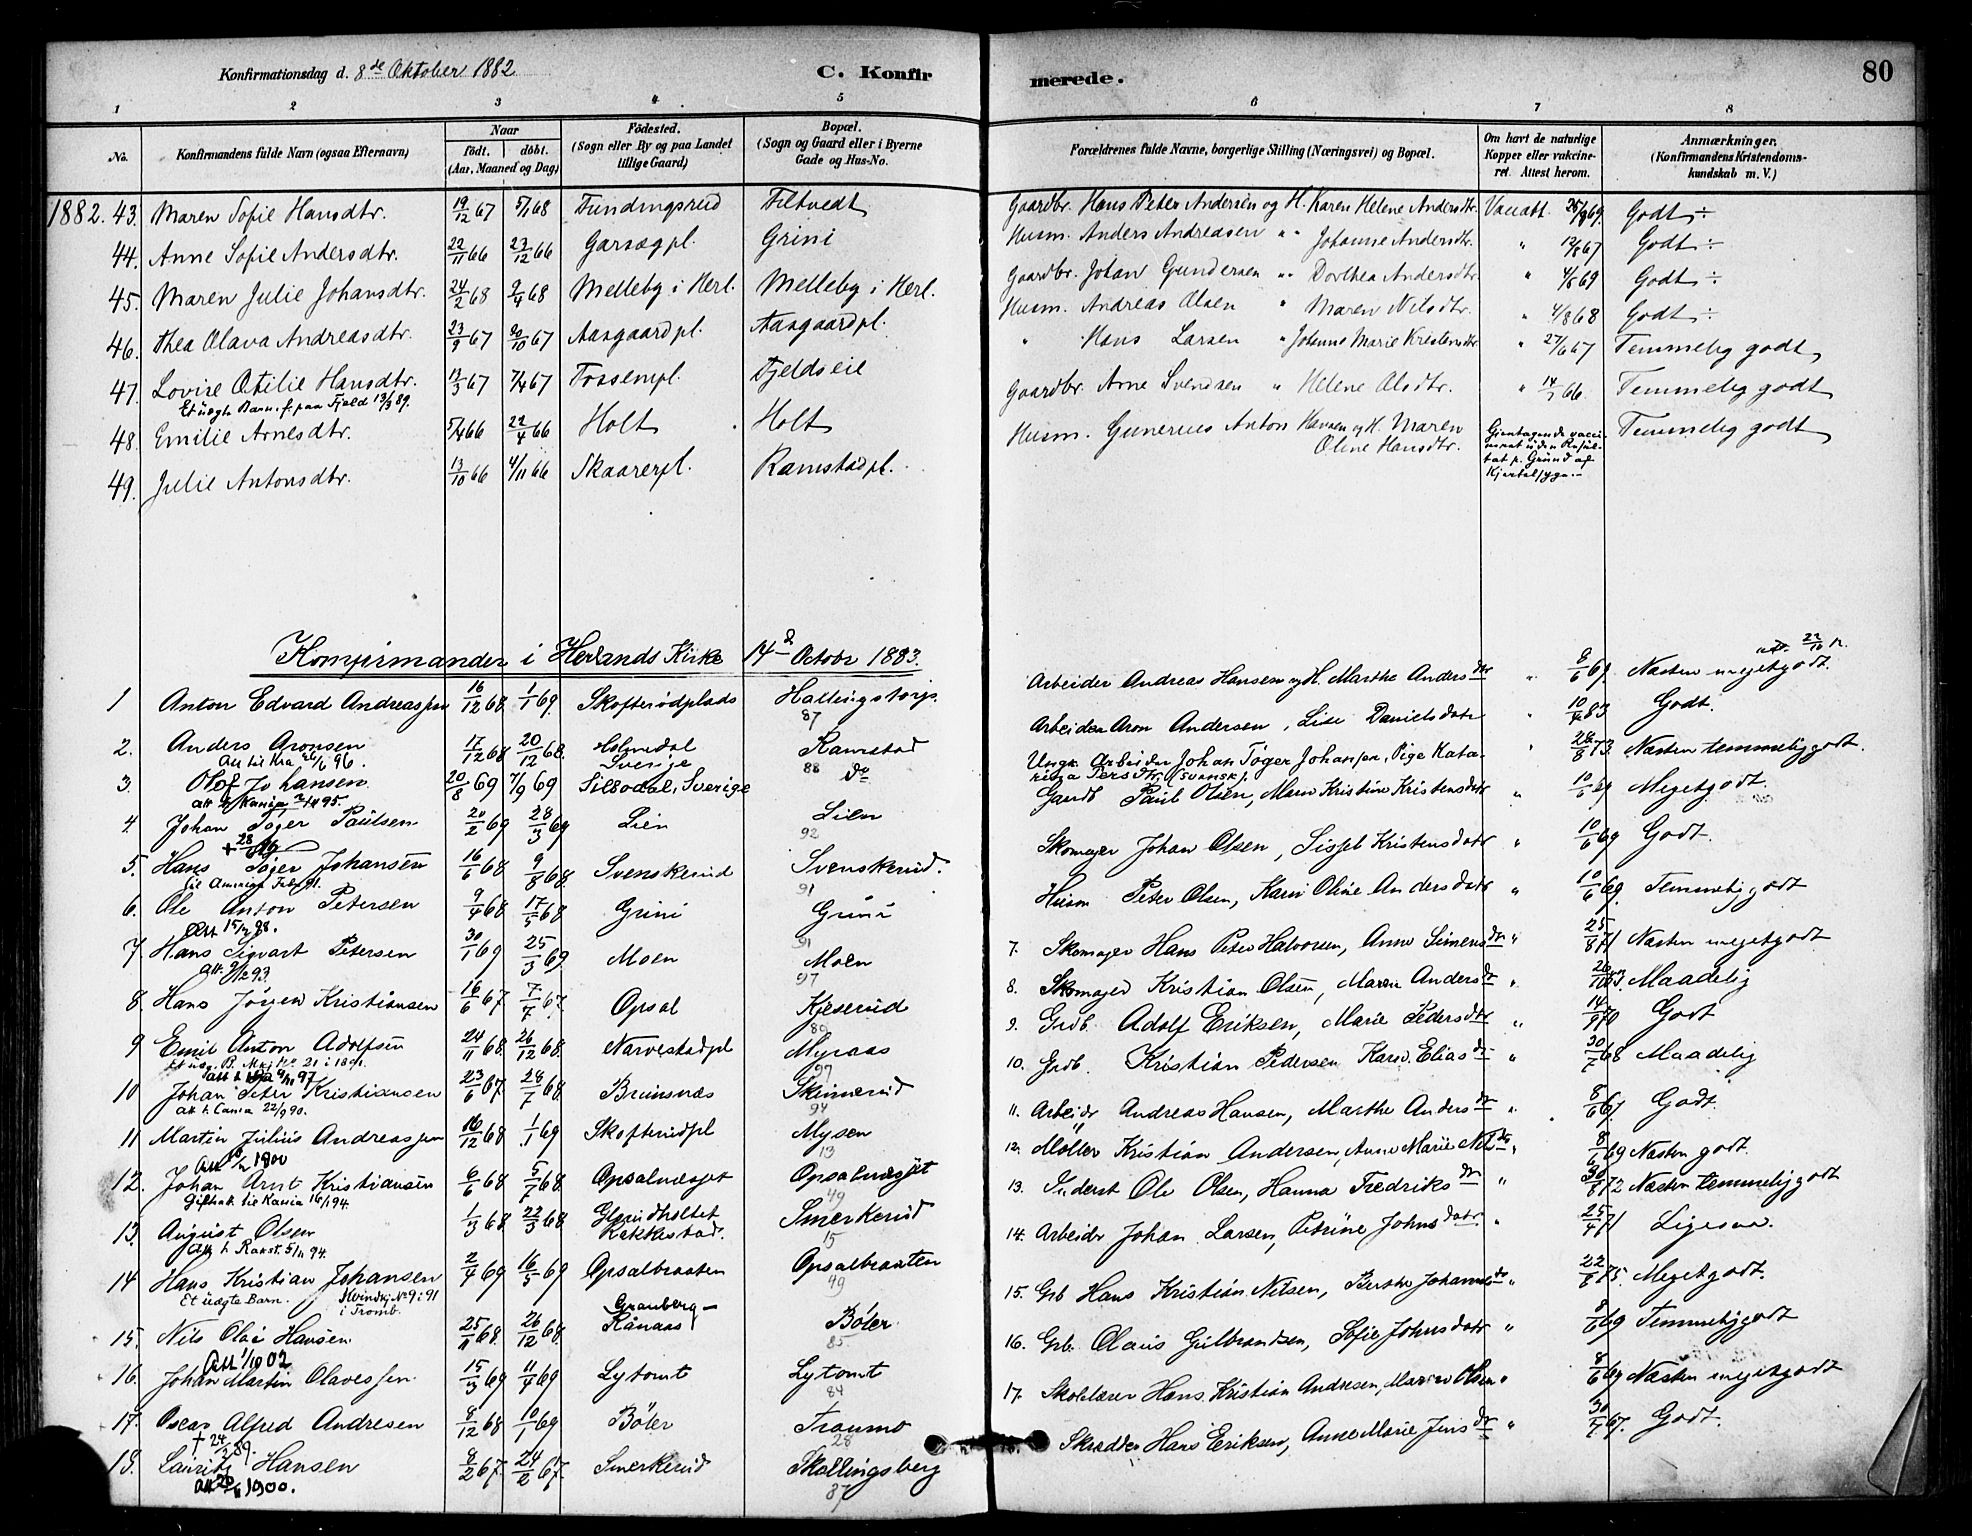 Konfirmationsdag d. 8de Oktober 1882
C. Konfirmerede.
80
1 2 3 4 5 6 7 8
No. Konfirmandens fulde Navn (ogsaa Efternavn) Naar födt. döbt. (Aar, Maaned og Dag) Födested. (Sogn eller By og paa Landet tillige Gaard) Bopæl. (Sogn og Gaard eller i Byerne Gade og Hus-No. Forældrenes fulde Navne, borgerlige Stilling (Næringsvei) og Bopæl. Om havt de naturlige Kopper eller vakcineret. Attest herom. Anmærkninger. (Konfirmandens Kristendomskundskab m. V.)
1882. 43. Maren Sofie Hansdtr. 19/12 67 5/1 68 Fundingsrud Filtvedt Gaardbr. Hans Peter Andersen og H. Karen Helene Andersdtr. Vacatt. Godt ÷
44. Anne Sofie Andersdtr. 22/11 66 23/12 66 Garsegpl. Grini Husm. Anders Andreasen " " Johanne Andersdtr. " Godt ÷
45. Maren Julie Johansdtr. 24/2 68 9/4 68 Melleby i Herl. Melleby i Herl. Gaardbr. Johan Gundersen " " Dorthea Andersdtr " 4/8 69 Godt ÷
46. Thea Olava Andreasdtr. 23/9 67 Aasgaardpl. Aasgaardpl. Husm. Andreas Olsen " Maren Nilsdtr. " 4/8 68 Godt ÷
47. Lovise Otilie Hansdtr. 13/3 67 7/4 67 Fossempl. Fjeldseie " Hans Larsen " Johanne Marie Kristensdtr " 27/6 67 Temmelig godt
Et uægte Barn. f. paa Fjeld 13/3 89.
48. Emilie Arnesdtr. 5/4 66 22/4 66 Holt Holt Gaardbr. Arne Svendsen " Helene Olsdtr. " Temmelig godt
49. Julie Antonsdtr. 13/10 66 4/11 66 Skaarerpl. Ramstadpl. Husm. Gunerius Anton Hansen og H. Maren Oline Hansdtr. Gjentagende vaccineret uden Resultat p. Grund af Kjertelsyge. Temmelig godt
Konfirmander i Herlands Kirke 14d Octobr 1883.
1 Anton Edvard Andreassen 16/12 68 1/1 69. Skofterödplads Hallingstorp. 87 Arbeider Andreas Hansen og H. Marthe Andersdtr " 8/6 69 Næsten megetgodt.
2. Anders Aronsen 17/12 68 20/12 68. Holmedal Sverige Ramstad 88 Arbeider Aron Andersen, Lise Danielsdatr " 10/4 83 Godt.
3. Olof Johansen 20/8 69 7/9 69 Silbodal, Sverige do Ungk. Arbeider Johan Töger Johansen. Pige Katarina Persdtr. (svensk). " 28/8 73 Næsten temmeliggodt.
4. Johan Töger Paulsen 20/2 69 28/3 69 Lien Lien 92 Gaardb Paul Olsen, Maren Kristine Kristensdatr " 10/6 69 Megetgodt.
5. Hans Töger Johansen 16/6 68 9/8 68. Svenskerud Svenskerud. 91 Skomager Johan Olsen, Sissel Kristensdatr " 10/6 69 Godt.
6. Ole Anton Petersen 9/4 68 17/5 68 Grini Grini 91 Husm Peter Olsen, Karen Oline Andersdatr " 10/6 69. Temmeliggodt
7. Hans Sigvart Petersen 30/1 69 25/3 69. Moen Moen 97 7. Skomager Hans Peter Halvorsen, Anne Simensdtr " 25/8 71 Næsten megetgodt
8. Hans Jörgen Kristiansen 16/6 67 7/7 67. Opsal Kjeserud 89 8. Skomager Kristian Olsen, Maren Andersdtr " Maadelig
9 Emil Anton Adolfsen 24/11 68 26/12 68. Narvestadpl Myraas 97 9. Grdb. Adolf Eriksen, Marie Pedersdtr " 14/9 70 Godt
10 Johan Peter Kristiansen 23/6 67 28/7 68 Brunsnæs Skinnerud 94 10. Grdb. Kristian Pedersen Karen Eliasdtr " 30/7 68 Maadelig
Att t. Cania 22/9 90.
11 Martin Julius Andreassen 16/12 68 1/1 69 Skofterudpl Mysen 13 11. Arbeidr Andreas Hansen, Marthe Andersdtr " 8/6 67. Godt.
12. Johan Arnt Kristiansen 6/6 68 5/7 68. Opsalnæset Opsalnæset 49 12. Möller Kristian Andersen, Anne Marie Nilsdtr " 8/6 69 Næsten godt.
Giftatt. til Kania 16/1 94.
13. August Olsen 1/3 68 22/3 68 Glerudholtet Rakkestad. Smerkerud 15 13. Inderst Ole Olsen, Hanna Fredriksdtr " 30/8 72 Næsten temmeliggodt
Att t. Rakst. 5/11 94.
14 Hans Kristian Johansen 2/4 69 16/5 69 Opsalbraaten Opsalbraaten 49 14. Arbeider Johan Larsen, Petrine Johnsdatr " 25/4 71 Ligesaa.
Et uægte Barn.
15. Nils Olai Hansen 25/11 68. 26/12 68. Granberg- Rånaas Böler 85 15. Grb Hans Kristian Nilsen, Berthe Johannesdtr " 22/8 75. Megetgodt.
Att 1/10 02
16. Johan Martin Olavessen 15/3 69 11/4 69 Lytomt Lytomt 84 16. Grb. Olaus Gulbrandsen, Sofie Johnsdatr " 8/6 69 Temmeliggodt
17. Oscar Alfred Andresen 8/12 68 10/1 69 Böler Traumo 28 17. Skolelærer Hans Kristian Andresen, Maren Olsen " 8/6 69 Næsten megetgodt
18. Lauritz Hansen 8/2 67. 24/2 67. Smerkerud Skallingsberg 87 Skrædder Hans Eriksen, Anne Marie Jensdtr " 30/7 67. Godt.
Att 20/6 1900.